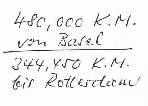 480,000 K.M.
von Basel
344,450 K.M.
bis Rotterdam